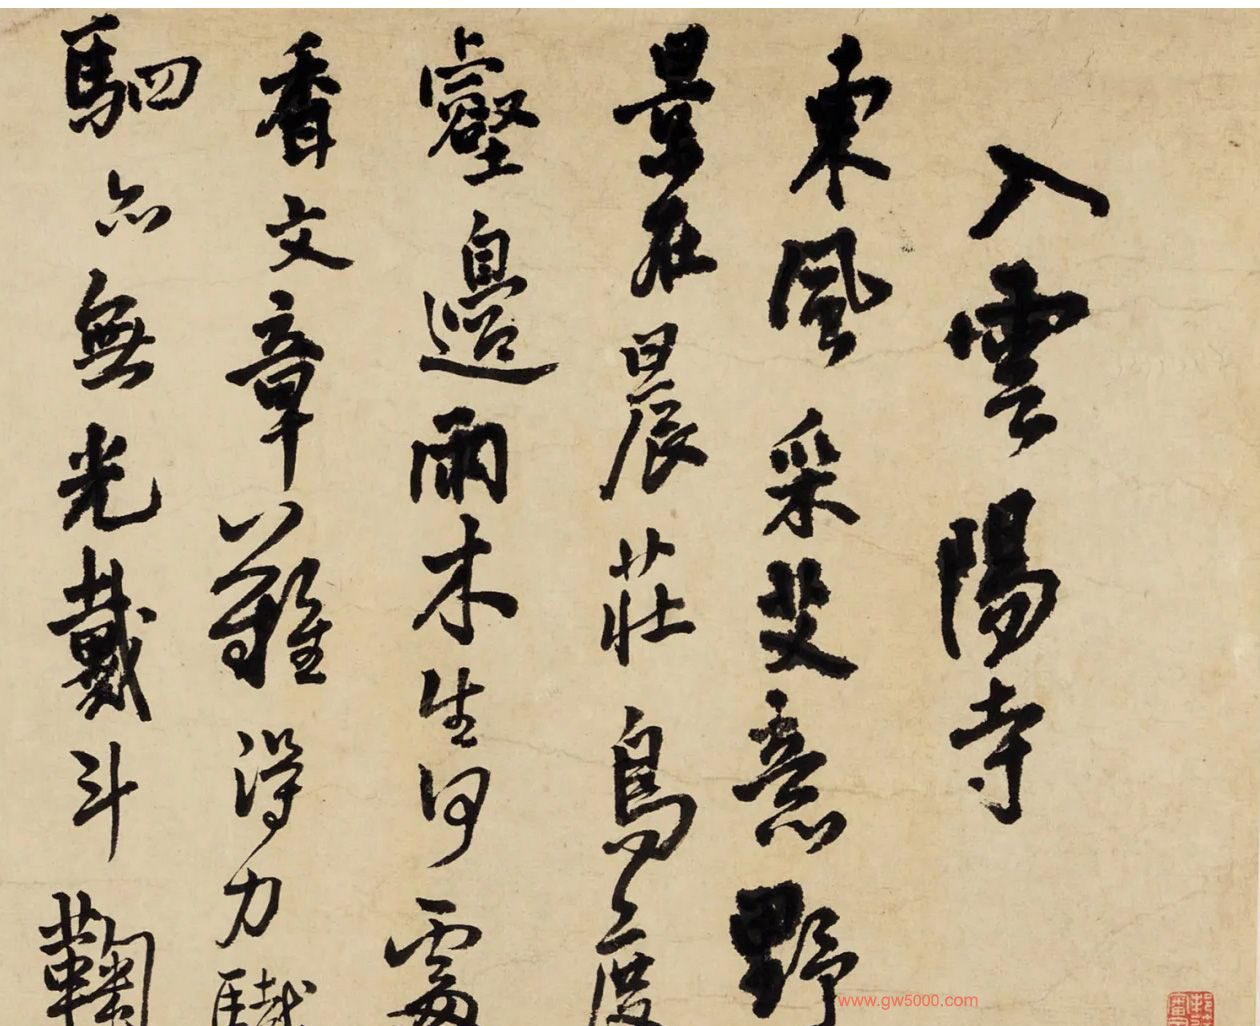 入雲陽寺
東風采艾意野
景在晨莊鳥度
壑邊雨木生何處
香文章難得力驖
駟亦無光戴斗鞠
www.gw5000.com